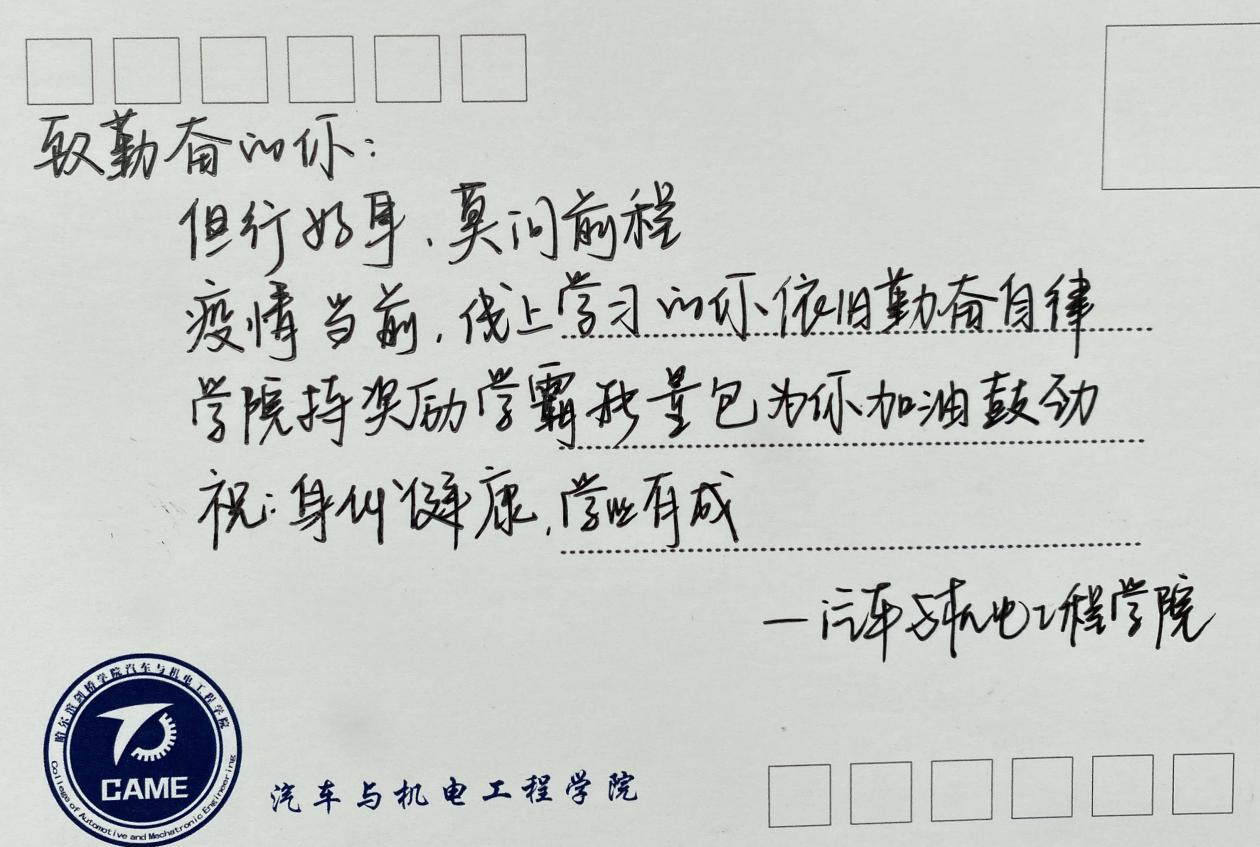 致勤奋的你：
但行好事，莫问前程
疫情当前，线上学习的你依旧勤奋自律
学院持奖励学霸能量包为你加油鼓劲
祝：身体健康，学业有成
—汽车与机电工程学院
哈尔滨剑桥学院汽车与机电工程学院
CAME
College of Automotive and Mechatronic Engineering
汽车与机电工程学院